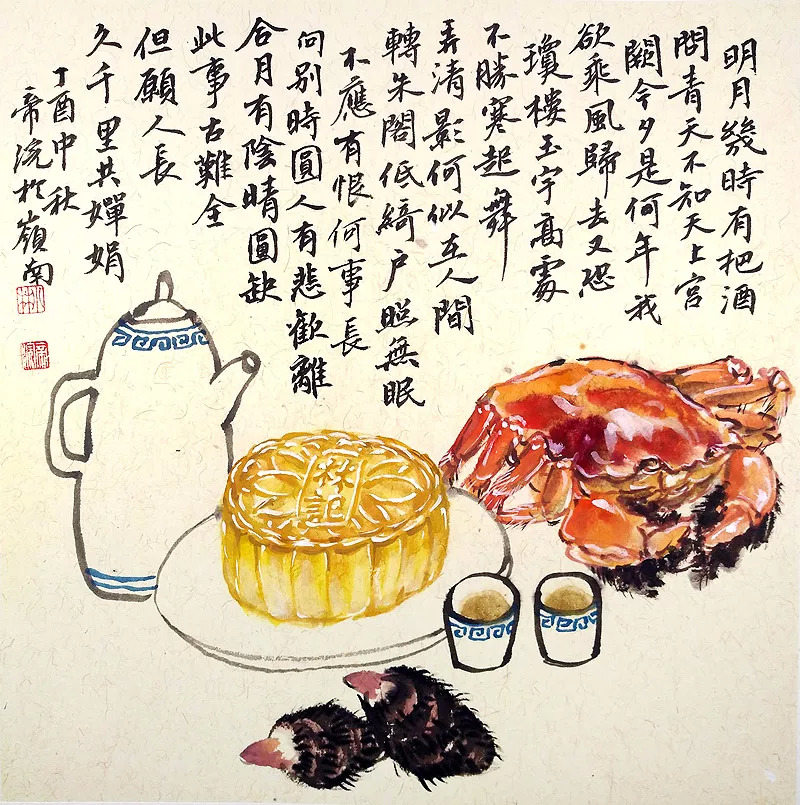 明月幾時有把酒
問青天不知天上宮
闕今夕是何年我
欲乘風歸去又恐
瓊樓玉宇高處
不勝寒起舞
弄清影何似在人間
轉朱閣低綺户照無眠
不應有恨何事長
向别時圓人有悲歡離
合月有陰晴圓缺
此事古難全
但願人長
久千里共嬋娟
丁酉中秋
帝浣於嶺南
記